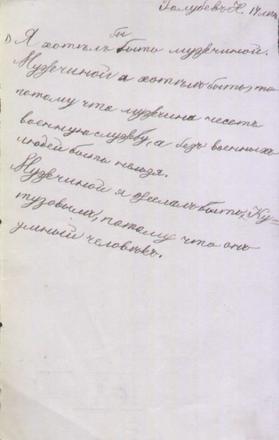 Голубевъ Н. 14 лѣтъ
1) Я хотѣлъ бы быть мужчиной.
Мужчиной я хотѣлъ быть
потому что мужчина несетъ
военную службу, а безъ военныхъ
людей быть нельзя.
Мужчиной я желалъ быть Ку-
тузовымъ, потому что онъ
умный человѣкъ.